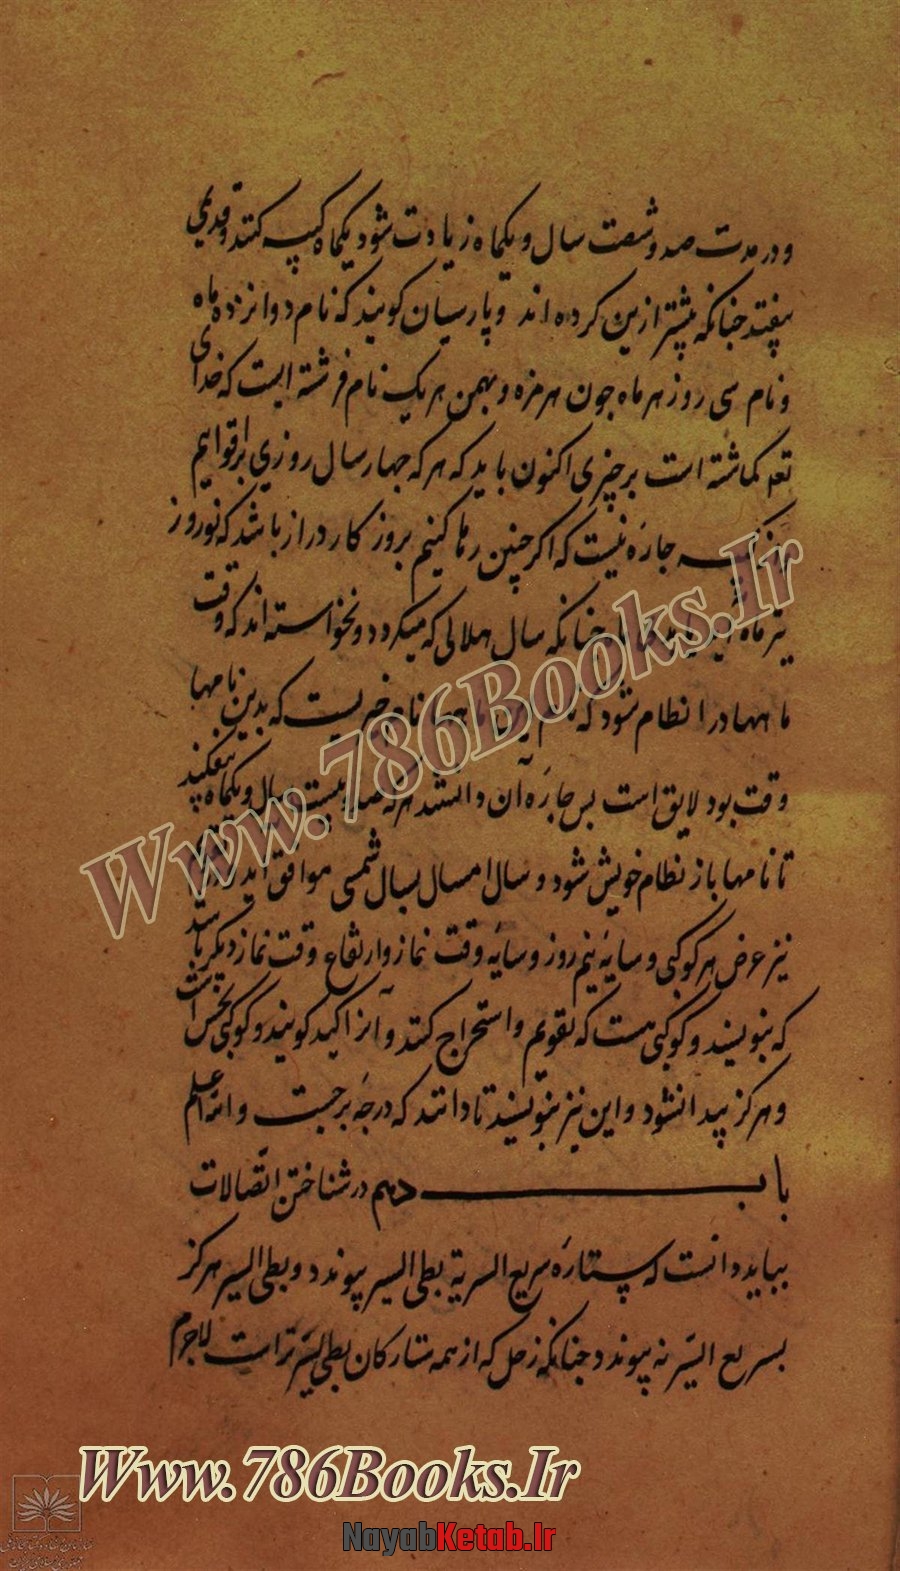 و در مدت صد و شصت سال و یکماه زیادت شود یکماه کپسه کنند و قدری
بیفتند جنانکه پیشتر ازین کرده اند و پارسیان کویند که نام دوانزده ماه
و نام سی روز هر ماه جون هرمزه و بهمن هر یک نام فرشته ایست که خدای
تعه کماشته است بر چیزی اکنون باید که هر که جهار سال روزی بر اقوایم
جاره نیست که اکر چنین رها کنیم بروز کار دراز باشد که نوروز
تیر ماه جنانکه سال هلالی که میکردد و نخواسته اند که وقت
ماهها در انظام شود که ماهها نام خبریست که بدین نامها
وقت بود لایق است بس جاره آن دانستند هر که صد و بیست سال و یکماه بیفکند
تا نامها باز نظام خویش شود و سال امسال بسال شمسی موافق آید
نیز عرض هر کوکبی و سایه نیم روز و سایه وقت نماز و ارتفاع وقت نماز دیکر باشد
که بنویسند و کوکبی هست که تقویم و استخراج کنند و آنرا کید کویند و کوکبی نحس است
و هرکز پیدا نشود و این نیز بنویسند تا دانند که درجه برجیست والله اعلم
باب دهم در شناختن اتصالات
بباید دانست که ستاره سریع السیر به بطی السیر پیوندد و بطی السیر هرکز
بسریع السیر نه پیوندد جنانکه زحل که از همه ستارکان بطی السیرتر است لاجرم
Www.786Books.Ir
Www.786Books.Ir
NayabKetab.Ir